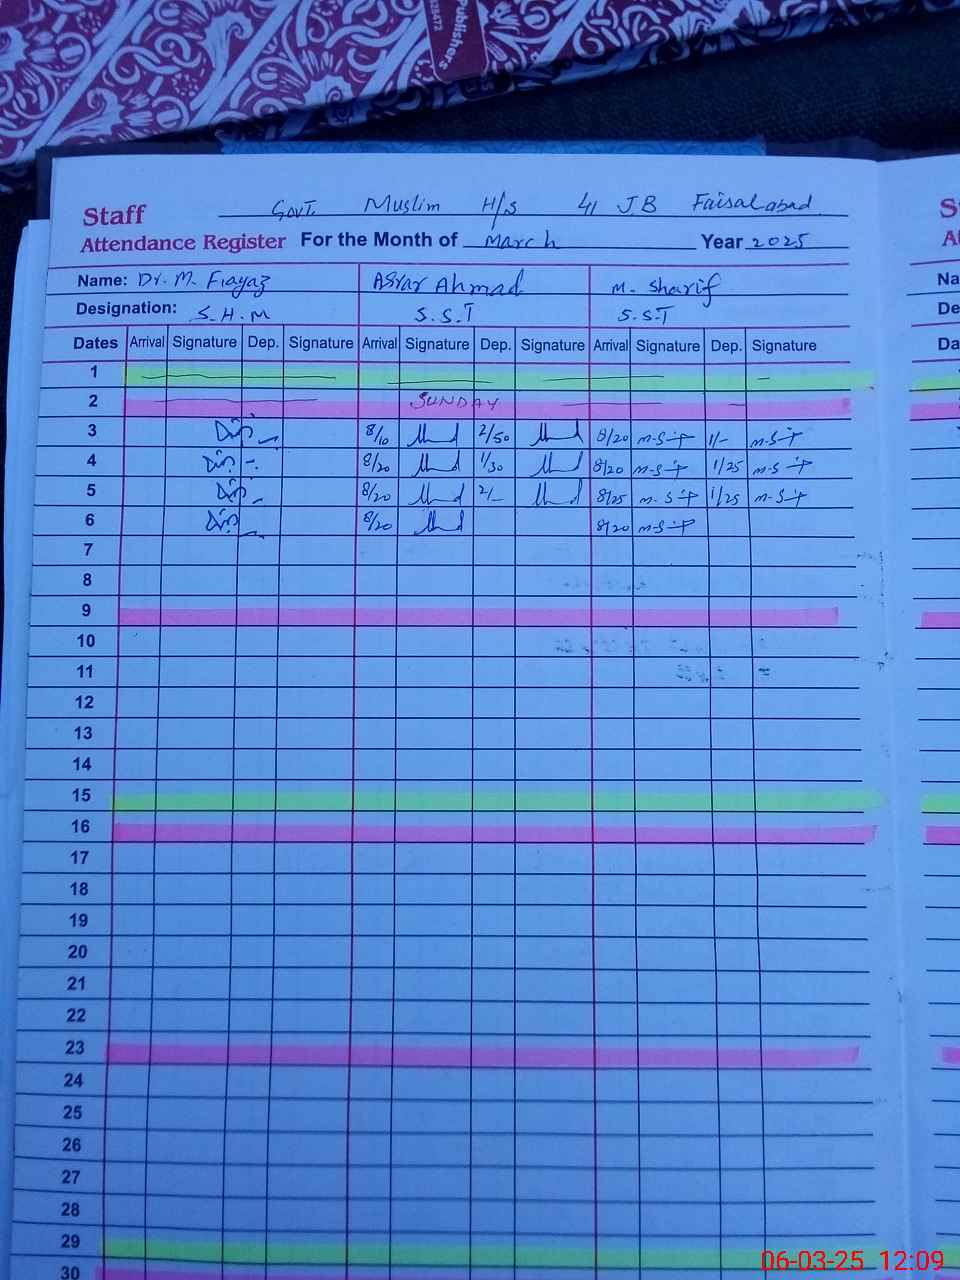 Publishers
Staff
Govt. Muslim H/S 41 JB Faisalabad
Attendance Register For the Month of March Year 2025
Name: Dr. M. Fiayaz Asrar Ahmad M. Sharif
Designation: S.H.M S.S.T S.S.T
Dates Arrival Signature Dep. Signature Arrival Signature Dep. Signature Arrival Signature Dep. Signature
1
2 SUNDAY
3 8/10 2/50 8/20 1/-
4 8/20 1/30 8/20 1/25
5 8/20 2/- 8/25 1/25
6 8/20 8/20
7
8
9
10
11
12
13
14
15
16
17
18
19
20
21
22
23
24
25
26
27
28
29
30
06-03-25 12:09